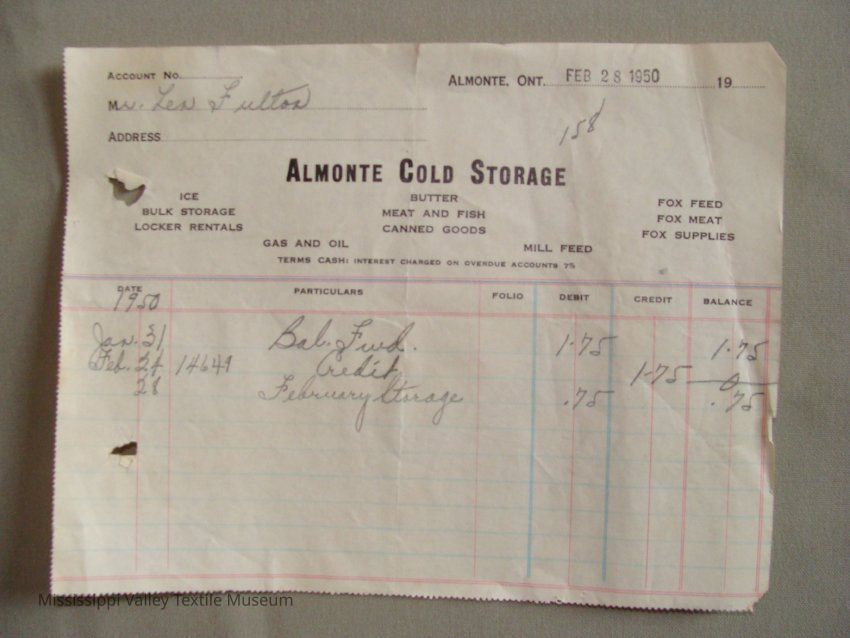 ACCOUNT No.
ALMONTE, ONT. FEB 28 1950 19
Mr. Len Fulton
158
ADDRESS
ALMONTE COLD STORAGE
ICE
BULK STORAGE
LOCKER RENTALS
BUTTER
MEAT AND FISH
CANNED GOODS
FOX FEED
FOX MEAT
FOX SUPPLIES
GAS AND OIL
MILL FEED
TERMS CASH: INTEREST CHARGED ON OVERDUE ACCOUNTS 7%
DATE PARTICULARS FOLIO DEBIT CREDIT BALANCE
1950
Jan. 31 Bal. Fwd. 1.75 1.75
Feb. 24 14649 Credit 1.75 0
28 February Storage .75 .75
Mississippi Valley Textile Museum